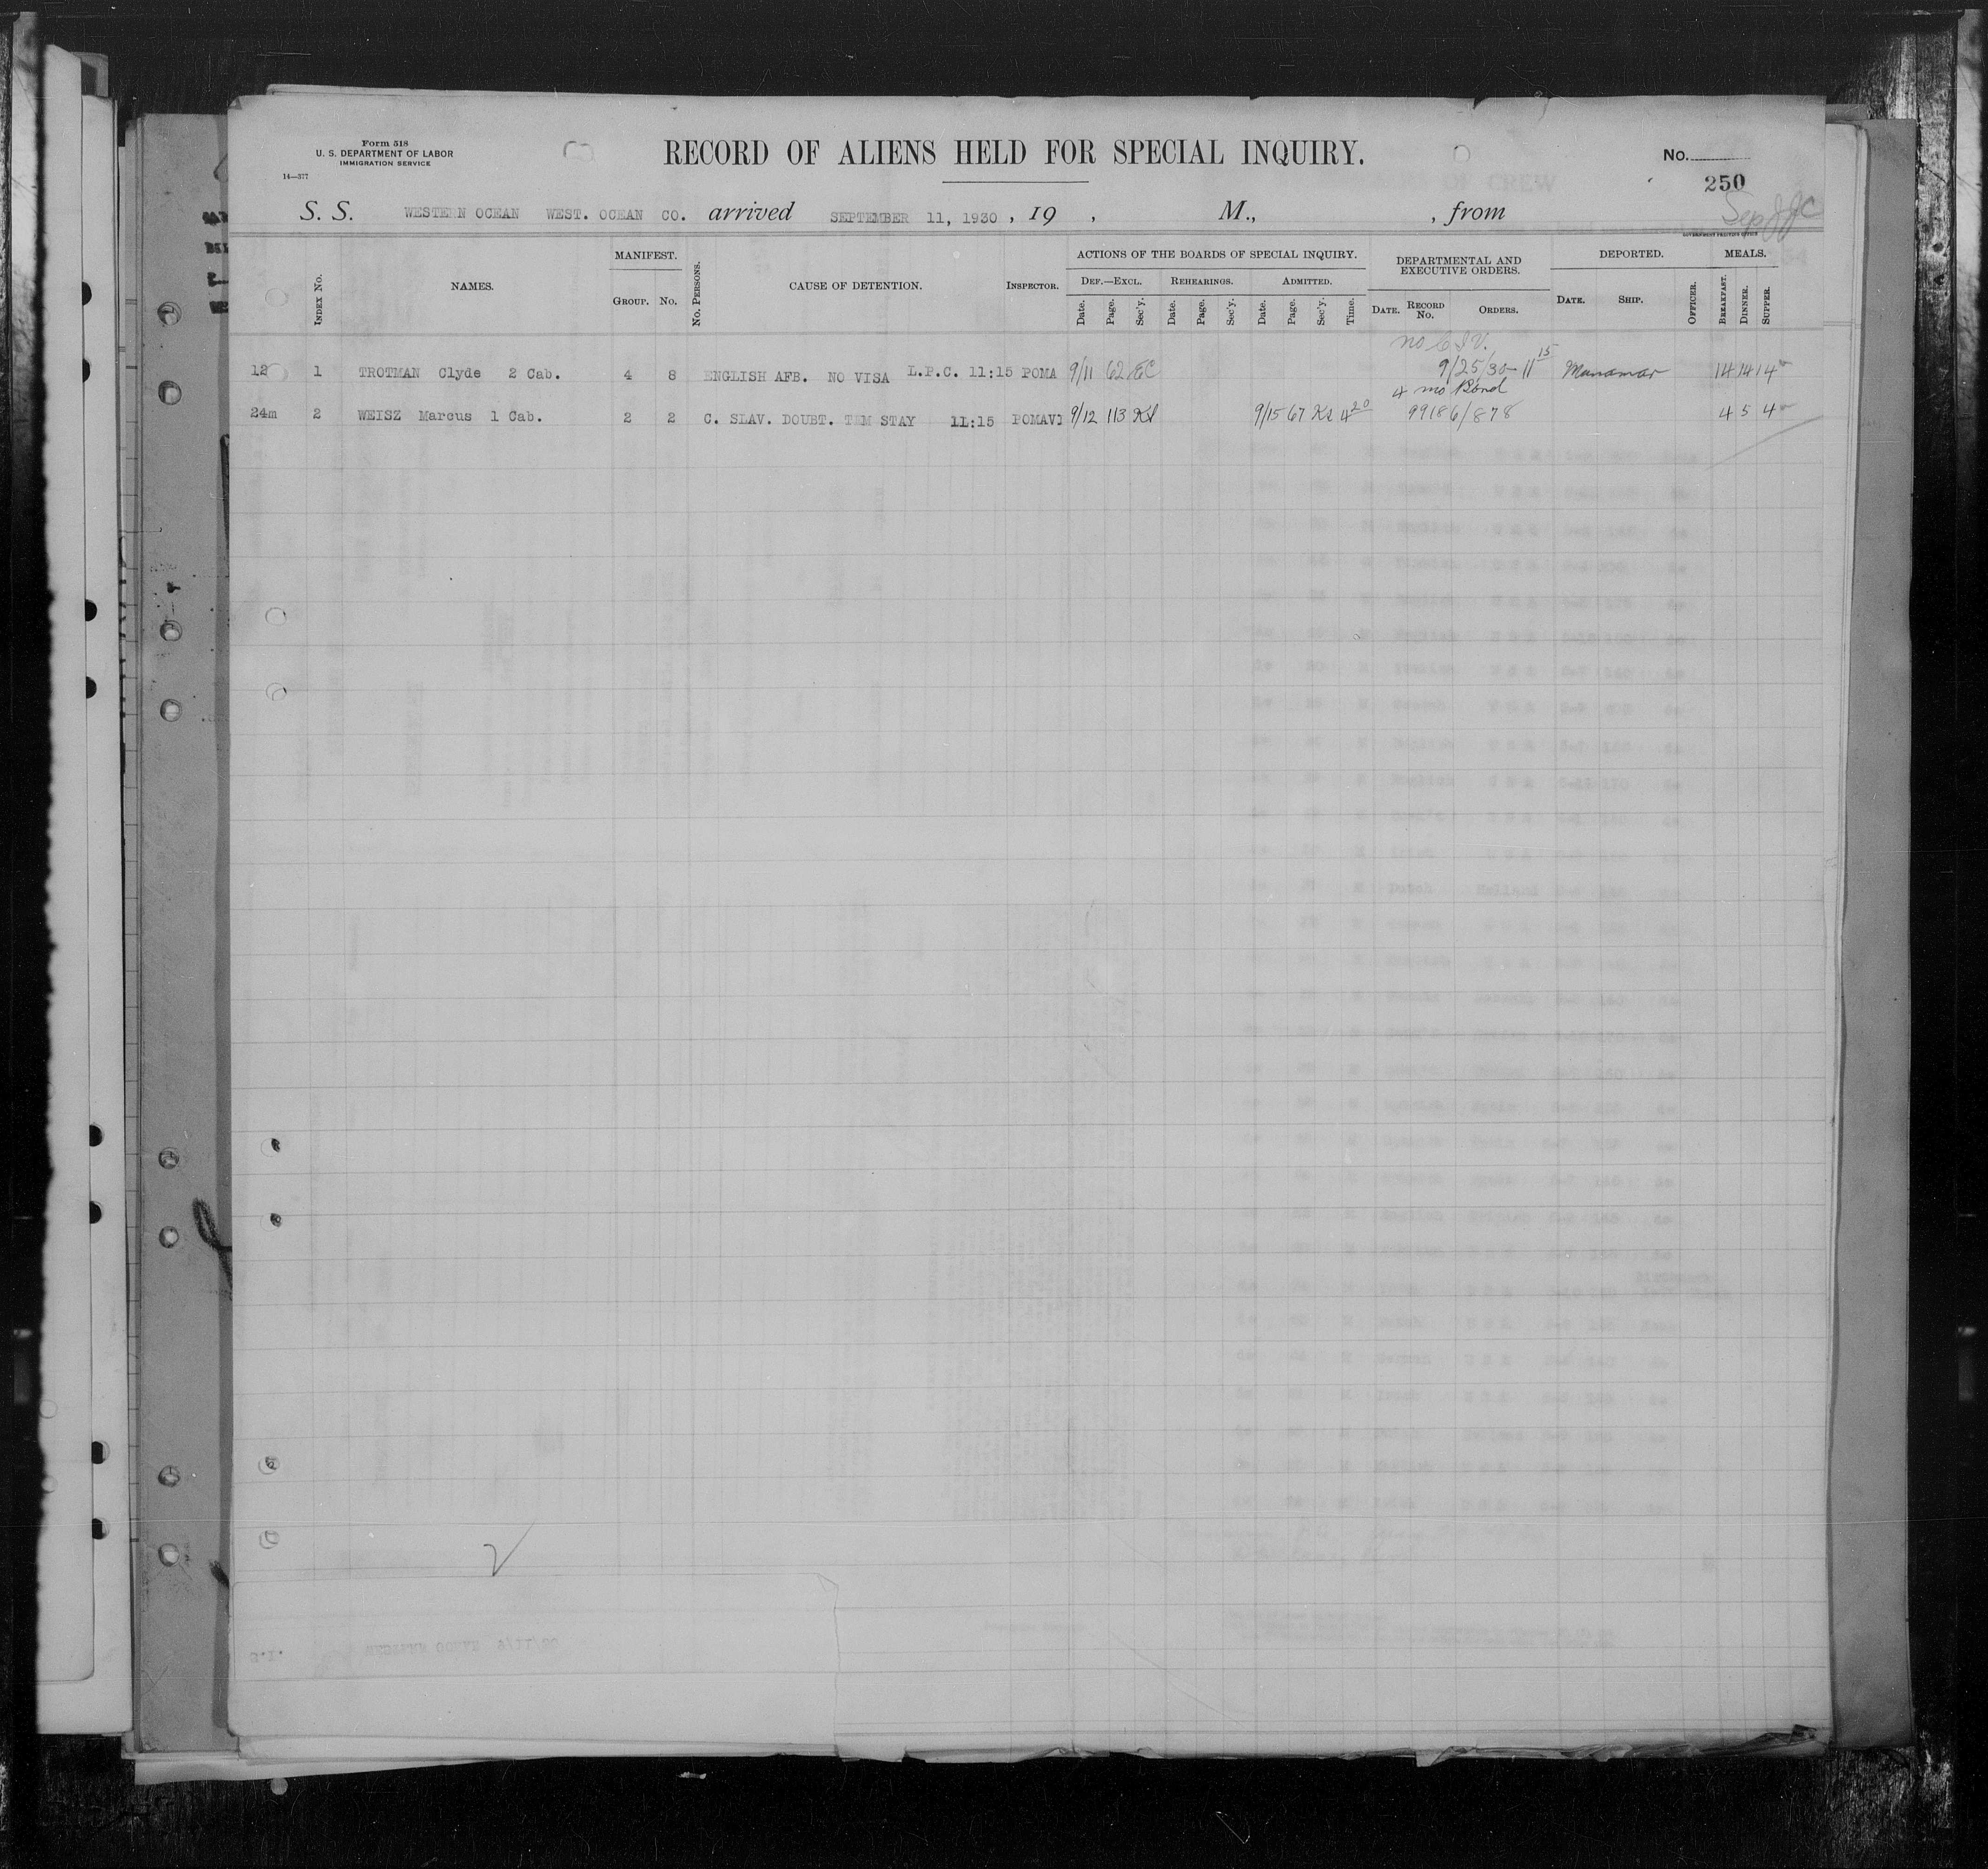 Form 518
U. S. DEPARTMENT OF LABOR
IMMIGRATION SERVICE
14—377
RECORD OF ALIENS HELD FOR SPECIAL INQUIRY.
No.
250
S. S. WESTERN OCEAN WEST. OCEAN CO. arrived SEPTEMBER 11, 1930 , 19 , M., , from
GOVERNMENT PRINTING OFFICE
INDEX No. NAMES. MANIFEST. GROUP. No. No. PERSONS. CAUSE OF DETENTION. INSPECTOR. ACTIONS OF THE BOARDS OF SPECIAL INQUIRY. DEPARTMENTAL AND EXECUTIVE ORDERS. DEPORTED. MEALS.
DEF.—EXCL. REHEARINGS. ADMITTED.
Date. Page. Sec'y. Date. Page. Sec'y. Date. Page. Sec'y. Time. DATE. RECORD No. ORDERS. DATE. SHIP. OFFICER. BREAKFAST. DINNER. SUPPER.
12 1 TROTMAN Clyde 2 Cab. 4 8 ENGLISH AFB. NO VISA L.P.C. 11:15 POMA 9/11 62 EC 9/25/30 - 11 15 Munamar 14 14 14
4 mo Bond
24m 2 WEISZ Marcus 1 Cab. 2 2 C. SLAV. DOUBT. TEM STAY 11:15 POMAVI 9/12 113 9/15 67 4 20 99186/878 4 5 4